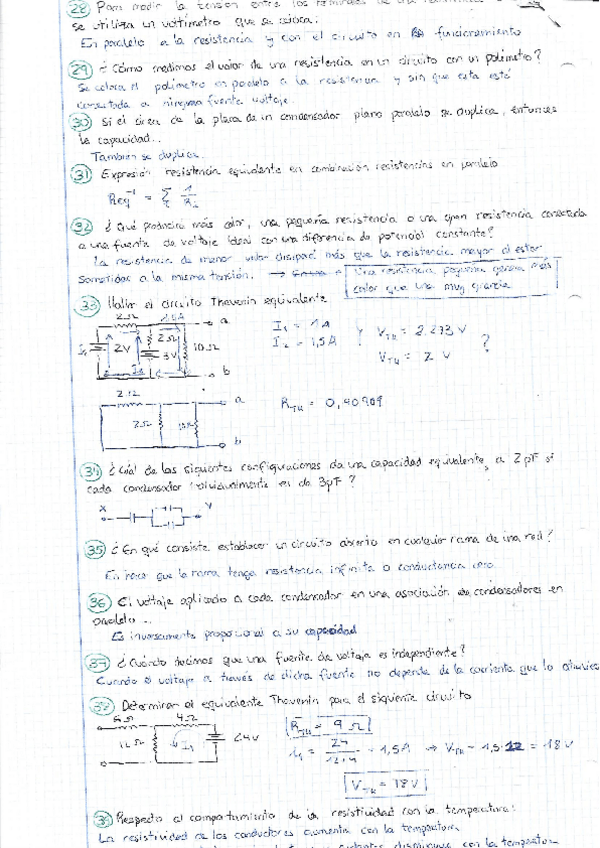 28 Para medir la tensión entre los terminales de una resistencia
se utiliza un voltímetro que se coloca:
En paralelo a la resistencia y con el circuito en funcionamiento
29 ¿Cómo medimos el valor de una resistencia en un circuito con un polímetro?
Se coloca el polímetro en paralelo a la resistencia y sin que esta esté
conectada a ninguna fuente voltaje.
30 Si el área de la placa de un condensador plano paralelo se duplica, entonces
la capacidad...
También se duplica.
31 Expresión resistencia equivalente en combinación resistencias en paralelo
Req⁻¹ = Σ 1/Ri
32 ¿Qué producirá más calor, una pequeña resistencia o una gran resistencia conectada
a una fuente de voltaje ideal con una diferencia de potencial constante?
La resistencia de menor valor disipará más que la resistencia mayor al estar
sometidas a la misma tensión. → Una resistencia pequeña genera más
calor que una muy grande
33 Hallar el circuito Thevenin equivalente
2Ω 1.5A a
I1 2V 2Ω 3V 10Ω
b
I1 = 1A
I2 = 1,5A
y VTH = 2.273 V
VTH = 2 V ?
2Ω a
2Ω 10Ω
b
RTH = 0,40909
34 ¿Cuál de las siguientes configuraciones da una capacidad equivalente a 2pF si
cada condensador individualmente es de 3pF?
X Y
35 ¿En qué consiste establecer un circuito abierto en cualquier rama de una red?
En hacer que la rama tenga resistencia infinita o conductancia cero
36 El voltaje aplicado a cada condensador en una asociación de condensadores en
paralelo...
Es inversamente proporcional a su capacidad
37 ¿Cuándo decimos que una fuente de voltaje es independiente?
Cuando el voltaje a través de dicha fuente no depende de la corriente que lo
38 Determinar el equivalente Thevenin para el siguiente circuito
4Ω
12Ω I1 24V
RTH = 9 Ω
I1 = 24/12+4 = 1,5A → VTH = 1,5·12 = 18V
VTH = 18V
39 Respecto al comportamiento de la resistividad con la temperatura:
La resistividad de los conductores aumenta con la temperatura
disminuye con la temperatura